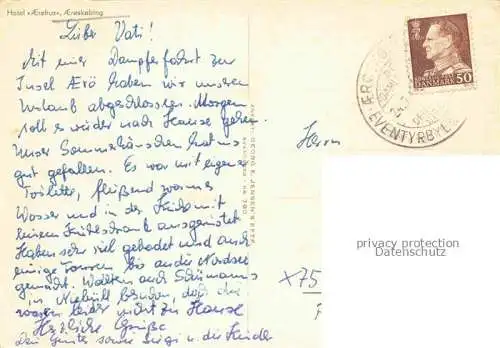 Hotel »Ærøhus«, Ærøskøbing
Lieber Vati!
Mit einer Dampferfahrt zur
Insel Ærö haben wir unseren
Urlaub abgeschlossen. Morgen
soll es wieder nach Hause gehen.
Unser Sommerhäuschen hat uns
gut gefallen. Es war mit eigener
Toilette, fließend warmes
Wasser und in der Küche mit
einem Kühlschrank ausgerüstet
Haben sehr viel gebadet und auch
einige Touren bis an die Nordsee
gemacht. Wollten auch Schümanns
in Niebüll besuchen, doch die
waren leider nicht zu Hause
Herzliche Grüße
Dein Günter sowie Sigi u. die Kinder
Herrn
50
DANMARK
EVENTYRBYEN
privacy protection
Datenschutz
x75